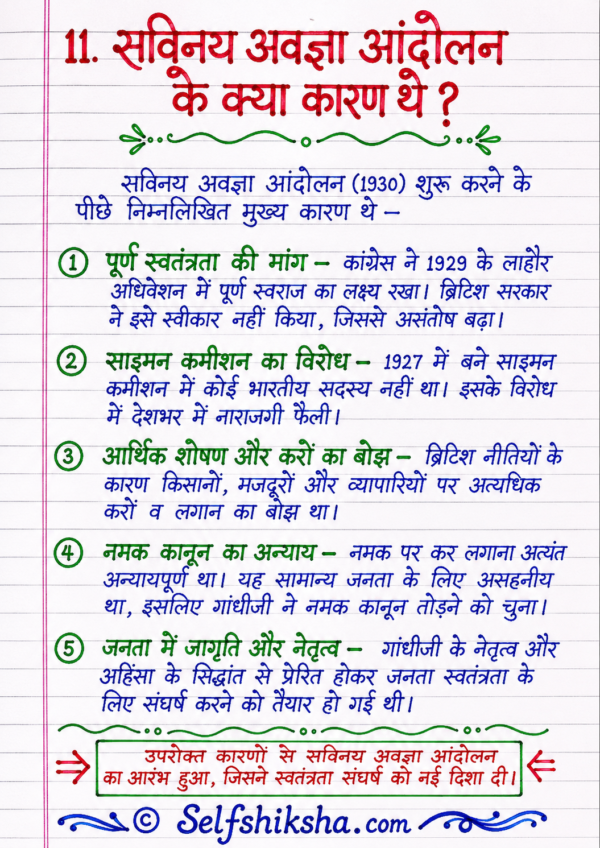 11. सविनय अवज्ञा आंदोलन
के क्या कारण थे ?
सविनय अवज्ञा आंदोलन (1930) शुरू करने के
पीछे निम्नलिखित मुख्य कारण थे –
1 पूर्ण स्वतंत्रता की मांग – कांग्रेस ने 1929 के लाहौर
अधिवेशन में पूर्ण स्वराज का लक्ष्य रखा। ब्रिटिश सरकार
ने इसे स्वीकार नहीं किया, जिससे असंतोष बढ़ा।
2 साइमन कमीशन का विरोध – 1927 में बने साइमन
कमीशन में कोई भारतीय सदस्य नहीं था। इसके विरोध
में देशभर में नाराजगी फैली।
3 आर्थिक शोषण और करों का बोझ – ब्रिटिश नीतियों के
कारण किसानों, मजदूरों और व्यापारियों पर अत्यधिक
करों व लगान का बोझ था।
4 नमक कानून का अन्याय – नमक पर कर लगाना अत्यंत
अन्यायपूर्ण था। यह सामान्य जनता के लिए असहनीय
था, इसलिए गांधीजी ने नमक कानून तोड़ने को चुना।
5 जनता में जागृति और नेतृत्व – गांधीजी के नेतृत्व और
अहिंसा के सिद्धांत से प्रेरित होकर जनता स्वतंत्रता के
लिए संघर्ष करने को तैयार हो गई थी।
उपरोक्त कारणों से सविनय अवज्ञा आंदोलन
का आरंभ हुआ, जिसने स्वतंत्रता संघर्ष को नई दिशा दी।
© Selfshiksha.com